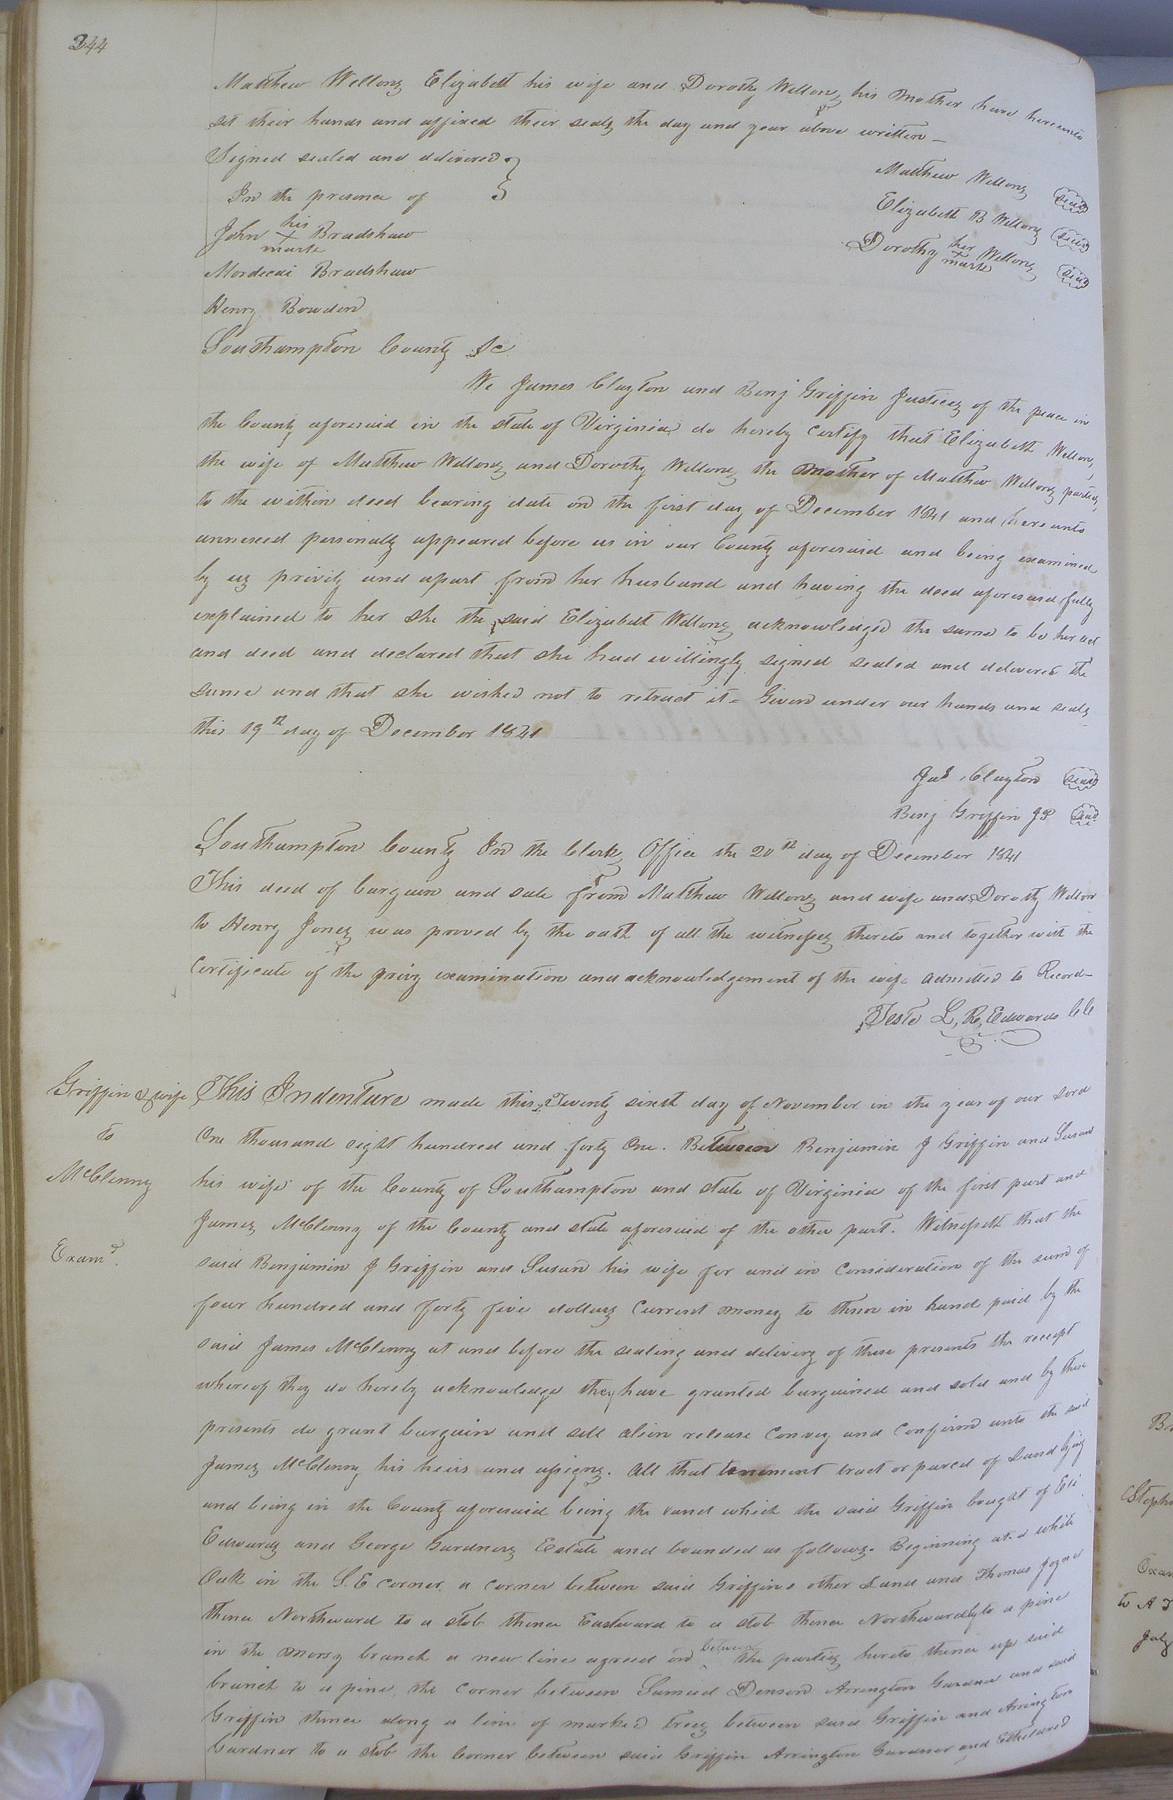 244
Matthew Wellons Elizabeth his wife and Dorothy Wellons his Mother have hereunto
set their hands and affixed their seals the day and year above written –
Signed sealed and delivered
In the presence of
John his + mark Bradshaw
Mordecai Bradshaw
Henry Bowden
Matthew Wellons seal
Elizabeth B Wellons seal
Dorothy her + mark Wellons seal
Southampton County Sc
We James Clayton and Benj Griffin Justices of the peace in
the County aforesaid in the state of Virginia do hereby certify that Elizabeth Wellons
the wife of Matthew Wellons and Dorothy Wellons the Mother of Matthew Wellons parties
to the within deed bearing date on the first day of December 1841 and hereunto
annexed personally appeared before us in our County aforesaid and being examined
by us privily and apart from her husband and having the deed aforesaid fully
explained to her she the said Elizabeth Wellons acknowledged the same to be her act
and deed and declared that she had willingly signed sealed and delivered the
same and that she wished not to retract it – Given under our hands and seals
this 19th day of December 1841
Jas Clayton seal
Benj Griffin JP seal
Southampton County In the Clerks Office the 20th day of December 1841
This deed of bargain and sale from Matthew Wellons and wife and Dorothy Wellons
to Henry Jones was proved by the oath of all the witnesses thereto and together with the
Certificate of the privy examination and acknowledgement of the wife admitted to Record –
Teste L. R. Edwards CC
Griffin & wife
to
McClenny
Examd.
This Indenture made this Twenty sixth day of November in the year of our Lord
One thousand eight hundred and forty One. Between Benjamin J Griffin and Susan
his wife of the County of Southampton and state of Virginia of the first part and
James McClenny of the County and state aforesaid of the other part. Witnesseth that the
said Benjamin J Griffin and Susan his wife for and in Consideration of the sum of
four hundred and forty five dollars Current money to them in hand paid by the
said James McClenny at and before the sealing and delivery of these presents the receipt
whereof they do hereby acknowledge they have granted bargained and sold and by these
presents do grant bargain and sell alien release Convey and Confirm unto the said
James McClenny his heirs and assigns. All that tenement tract or parcel of Land lying
and being in the County aforesaid being the Land which the said Griffin bought of Eli
Edwards and George Gardners Estate and bounded as follows. Beginning at a white
Oak in the S.E corner a corner between said Griffins other Land and Thomas Joyner
thence Northward to a stob thence Eastward to a stob thence Northwardly to a pine
in the morsy branch a new line agreed on between the parties hereto thence up said
branch to a pine the corner between Samuel Denson Arrington Gardner and said
Griffin thence along a line of marked trees between said Griffin and Arrington
Gardner to a stob the Corner between said Griffin Arrington Gardner and Etheldred
Stephe
Exam
to A
July